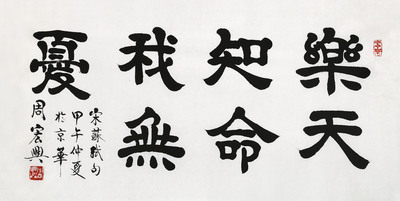 樂天
知命
我無
憂
宋蘇軾句
甲午仲夏
於京華
周宏興